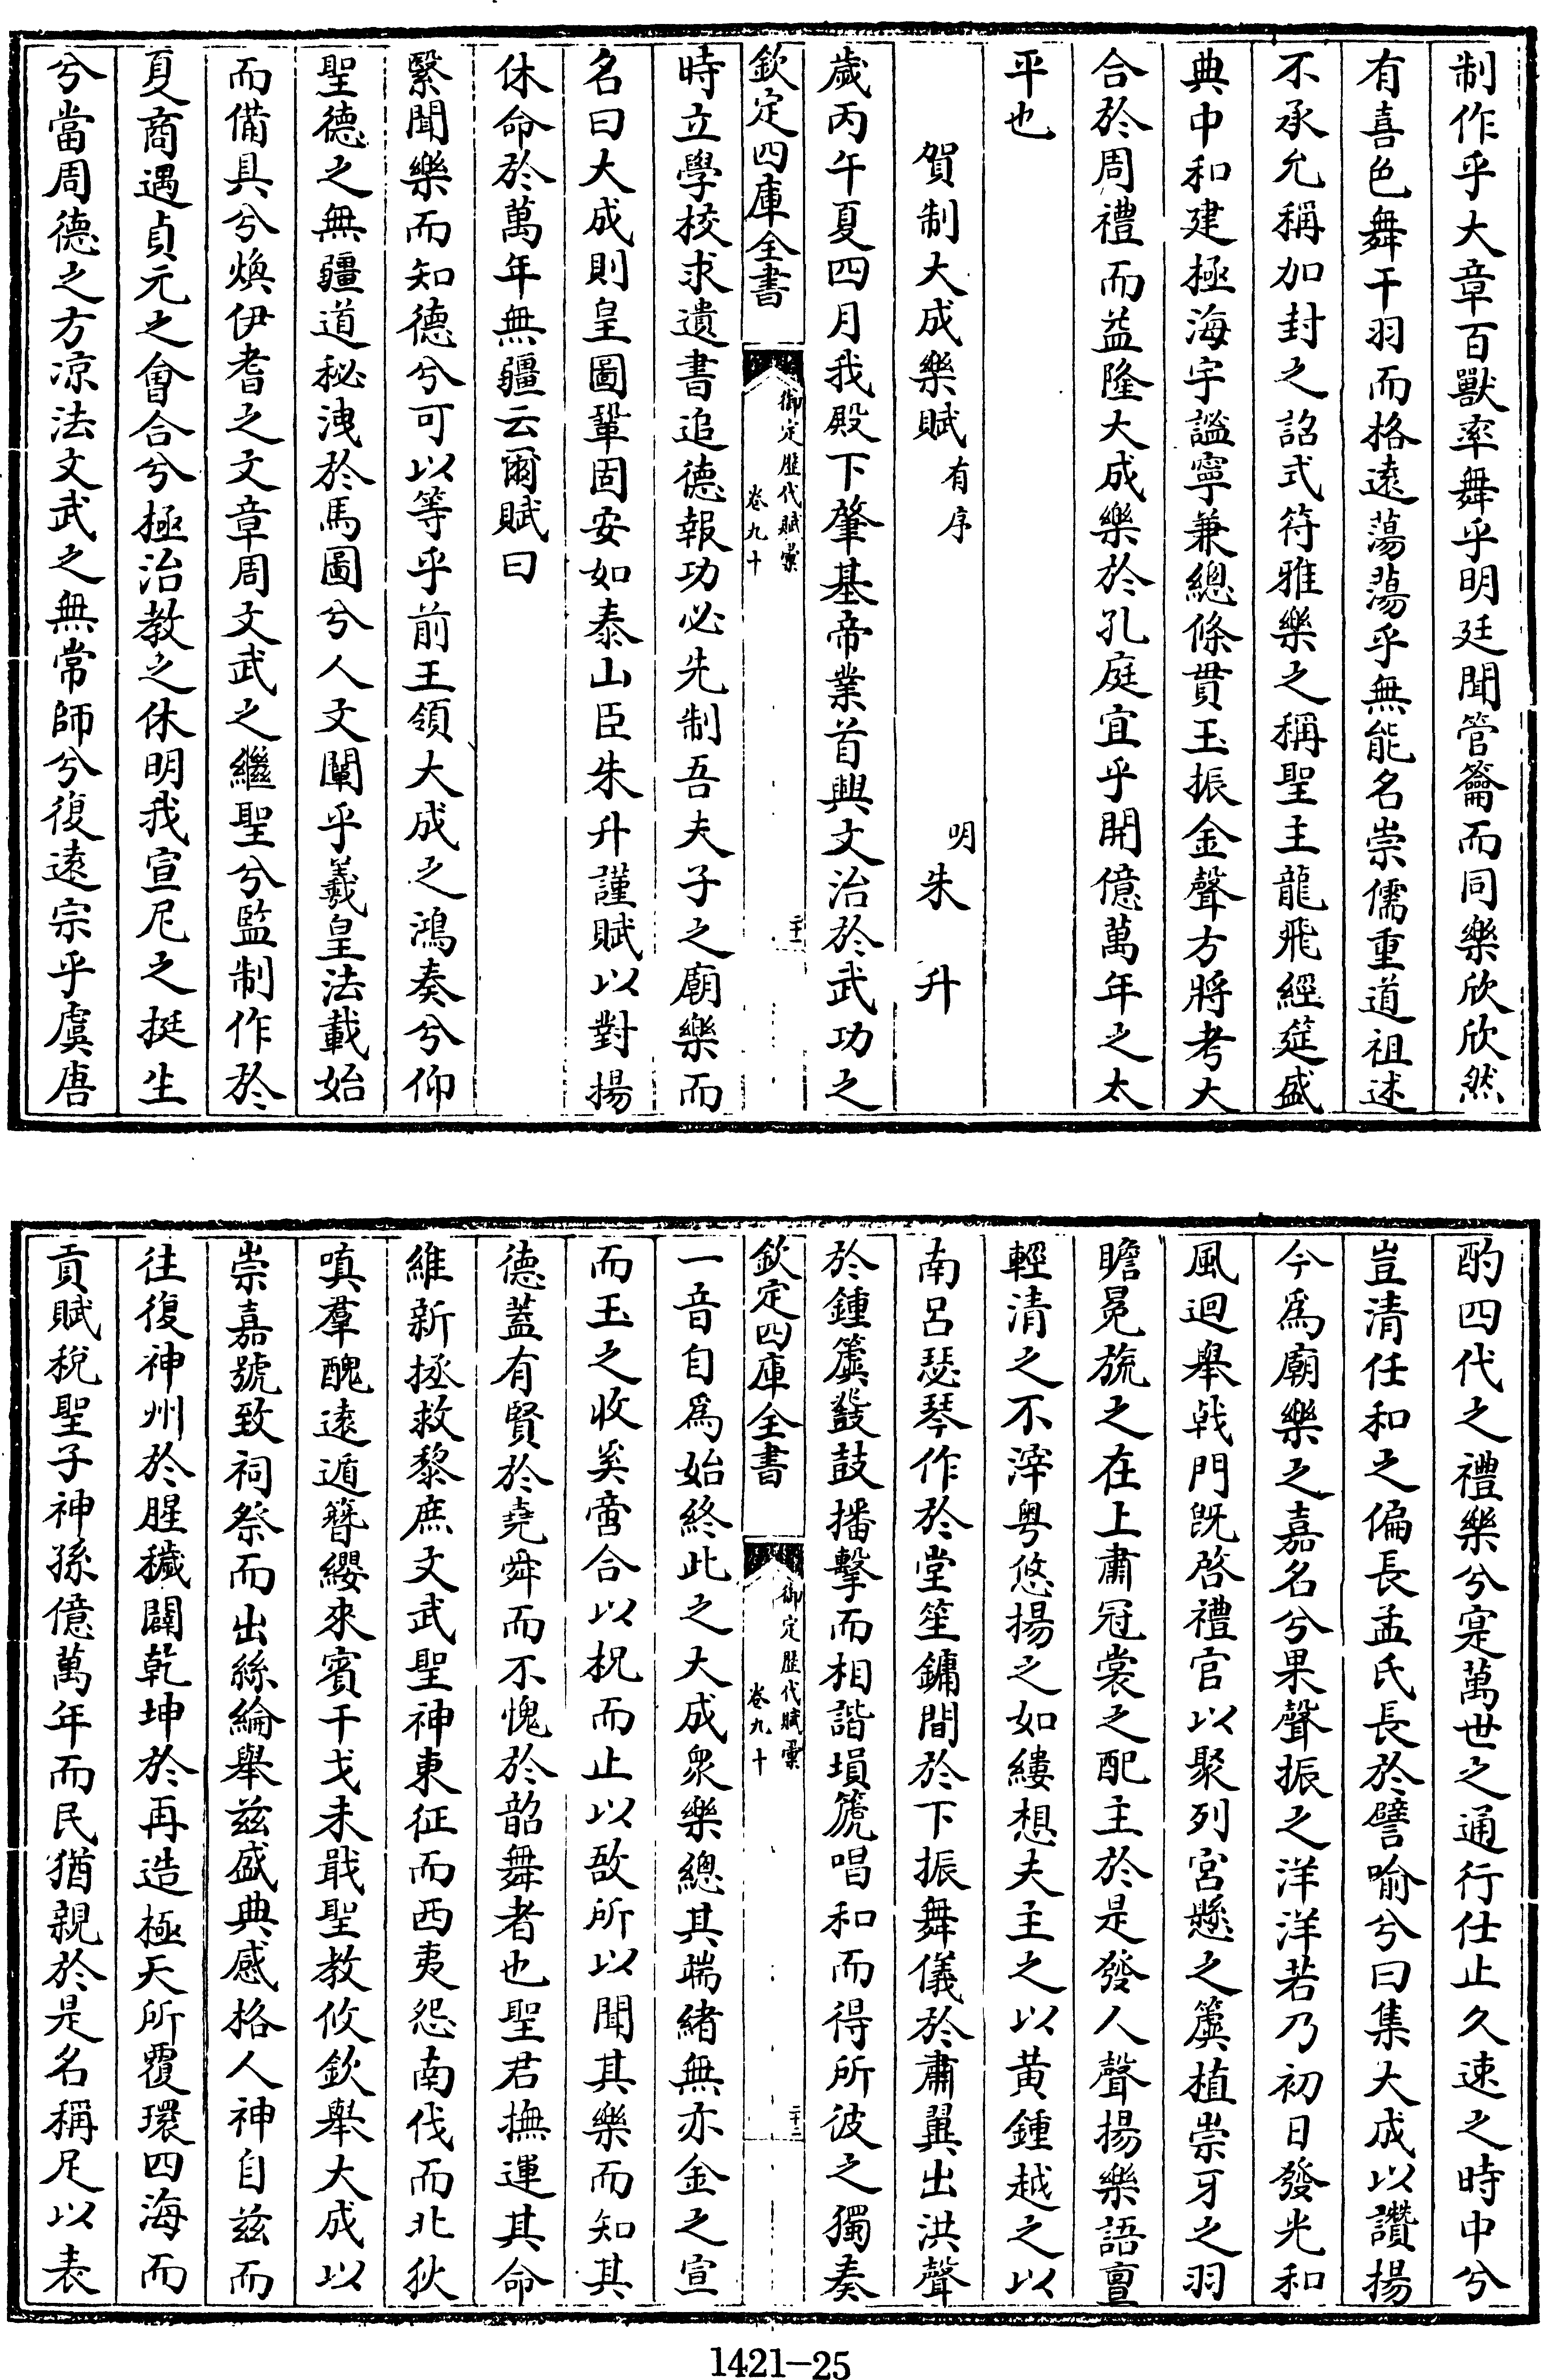 制作乎大章百獸率舞乎明廷聞管籥而同樂欣欣然
有喜色舞干羽而格遠蕩蕩乎無能名崇儒重道祖述
不承允稱加封之詔式符雅樂之稱聖主龍飛經筵盛
典中和建極海宇謐寧兼總條貫玉振金聲方將考大
合於周禮而益隆大成樂於孔庭宜乎開億萬年之太
平也
賀制大成樂賦有序 明朱升
歲丙午夏四月我殿下肇基帝業首興文治於武功之
欽定四庫全書 御定歷代賦彙 卷九十 二十一
時立學校求遺書追德報功必先制吾夫子之廟樂而
名曰大成則皇圖鞏固安如泰山臣朱升謹賦以對揚
休命於萬年無疆云爾賦曰
繄聞樂而知德兮可以等乎前王領大成之鴻奏兮仰
聖德之無疆道秘洩於馬圖兮人文闡乎羲皇法載始
而備具兮煥伊耆之文章周文武之繼聖兮監制作於
夏商遇貞元之會合兮極治教之休明我宣尼之挺生
兮當周德之方凉法文武之無常師兮復遠宗乎虞唐
酌四代之禮樂兮寔萬世之通行仕止久速之時中兮
豈清任和之偏長孟氏長於譬喻兮曰集大成以讚揚
今爲廟樂之嘉名兮果聲振之洋洋若乃初日發光和
風迴舉戟門既啓禮官以聚列宮懸之簴植崇牙之羽
瞻冕旒之在上肅冠裳之配主於是發人聲揚樂語亶
輕清之不滓粤悠揚之如縷想夫主之以黃鍾越之以
南呂瑟琴作於堂笙鏞間於下振舞儀於肅翼出洪聲
於鍾簴鼗鼓播擊而相諧塤篪唱和而得所彼之獨奏
欽定四庫全書 御定歷代賦彙 卷九十 二十二
一音自爲始終此之大成衆樂總其端緒無亦金之宣
而玉之收奚啻合以柷而止以敔所以聞其樂而知其
德蓋有賢於堯舜而不愧於韶舞者也聖君撫運其命
維新拯救黎庶文武聖神東征而西夷怨南伐而北狄
嗔羣醜遠遁簪纓來賓干戈未戢聖教攸欽舉大成以
崇嘉號致祠祭而出絲綸舉兹盛典感格人神自兹而
往復神州於腥穢闢乾坤於再造極天所覆環四海而
貢賦稅聖子神孫億萬年而民猶親於是名稱足以表
1421—25